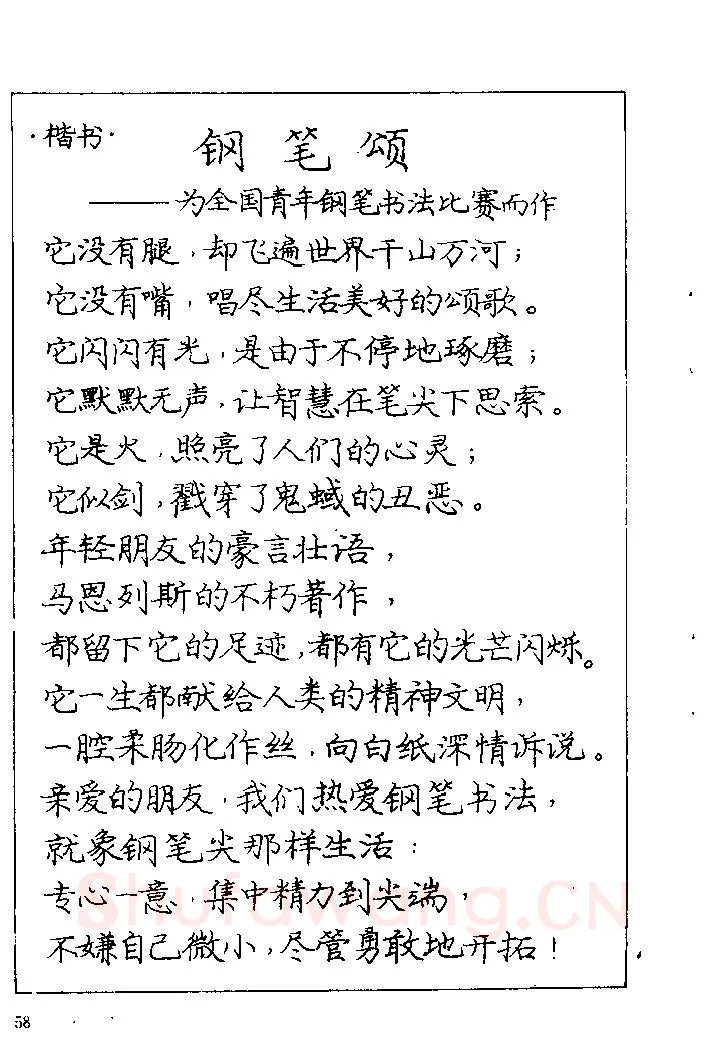 ·楷书·
钢笔颂
——为全国青年钢笔书法比赛而作
它没有腿，却飞遍世界千山万河；
它没有嘴，唱尽生活美好的颂歌。
它闪闪有光，是由于不停地琢磨；
它默默无声，让智慧在笔尖下思索。
它是火，照亮了人们的心灵；
它似剑，戳穿了鬼蜮的丑恶。
年轻朋友的豪言壮语，
马恩列斯的不朽著作，
都留下它的足迹，都有它的光芒闪烁。
它一生都献给人类的精神文明，
一腔柔肠化作丝，向白纸深情诉说。
亲爱的朋友，我们热爱钢笔书法，
就象钢笔尖那样生活：
专心一意，集中精力到尖端，
不嫌自己微小，尽管勇敢地开拓！
Shufawang.CN
58